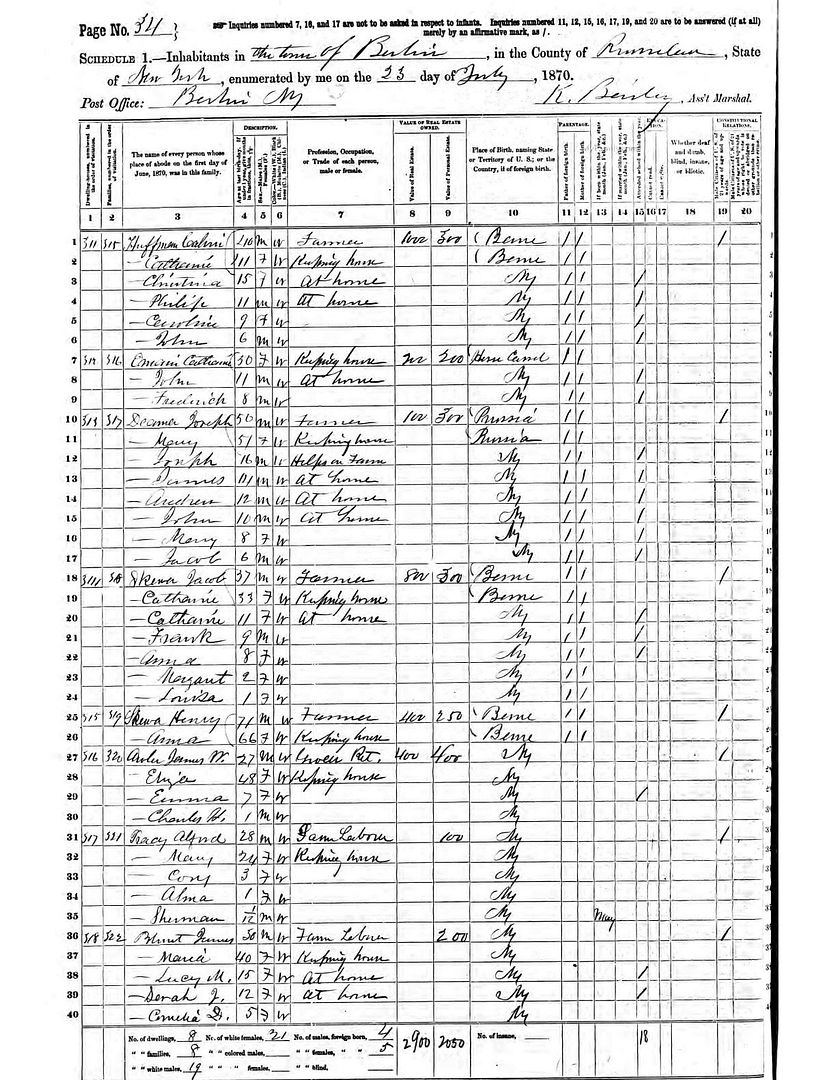 Page No. 34
Inquiries numbered 7, 16, and 17 are not to be asked in respect to infants. Inquiries numbered 11, 12, 15, 16, 17, 19, and 20 are to be answered (if at all)
merely by an affirmative mark, as /.
SCHEDULE 1.—Inhabitants in the town of Berlin, in the County of Rensselaer, State
of New York, enumerated by me on the 23 day of July, 1870.
Post Office: Berlin Ny
Ass't Marshal.
DESCRIPTION. VALUE OF REAL ESTATE OWNED. PARENTAGE.
The name of every person whose place of abode on the first day of June, 1870, was in this family.
Profession, Occupation, or Trade of each person, male or female.
Value of Real Estate. Value of Personal Estate.
Place of Birth, naming State or Territory of U. S.; or the Country, if of foreign birth.
Father of foreign birth. Mother of foreign birth.
Whether deaf and dumb, blind, insane, or idiotic.
1 2 3 4 5 6 7 8 9 10 11 12 13 14 15 16 17 18 19 20
1 311 315 Huffman 40 m w Farmer 1000 300 Berne / / /
2 — Catharine 41 F w Keeping house Berne / /
3 — Christina 15 F w At home Ny / / /
4 — Philip 11 m w At home Ny / / /
5 — Caroline 9 F w Ny / / /
6 — John 6 m w Ny / / /
7 316 Catharine 50 F w Keeping house 200 200 / /
8 — John 11 m w At home Ny / / /
9 — Frederick 8 m w Ny / / /
10 313 317 Joseph 50 m w Farmer 100 300 Russia / / /
11 — Mary 51 F w Keeping house Russia / /
12 — Joseph 16 m w Helps on Farm Ny / / /
13 — James m w At home Ny / / /
14 — Andrew 12 m w At home Ny / / /
15 — John 10 m w At home Ny / / /
16 — Mary 8 F w Ny / / /
17 — Jacob 6 m w Ny / / /
18 314 318 Skewa Jacob 37 m w Farmer 800 300 Berne / / /
19 — Catharine 33 F w Keeping house Berne / /
20 — Catharine 11 F w At home Ny / / /
21 — Frank 9 m w Ny / / /
22 — Anna 8 F w Ny / / /
23 — Margaret 2 F w Ny / /
24 — Louisa 1 F w Ny / /
25 315 319 Skewa Henry 71 m w Farmer 400 250 Berne / / /
26 — Anna 66 F w Keeping house Berne / /
27 316 320 James W. 27 m w 400 400 Ny /
28 — Eliza 48 F w Keeping house Ny
29 — Emma 7 F w Ny /
30 — Charles H. 1 m w Ny
31 317 321 Tracy Alfred 28 m w Farm Laborer 100 Ny /
32 — Mary 24 F w Keeping house Ny
33 — Cory 3 F w Ny
34 — Alma 1 F w Ny
35 — Sherman 1/12 m w Ny May
36 318 322 Blunt James 50 m w Farm Laborer 200 Ny /
37 — Maria 40 F w Keeping house Ny
38 — Lucy M. 15 F w At home Ny /
39 — Sarah J. 12 F w At home Ny /
40 — Cornelia D. 5 F w Ny
No. of dwellings, 8 No. of white females, 21 No. of males, foreign born, 4 2900 2050 No. of insane, 18
" " families, 8 " " colored males, " " females, " " 5
" " white males, 19 " " " females, " " blind.